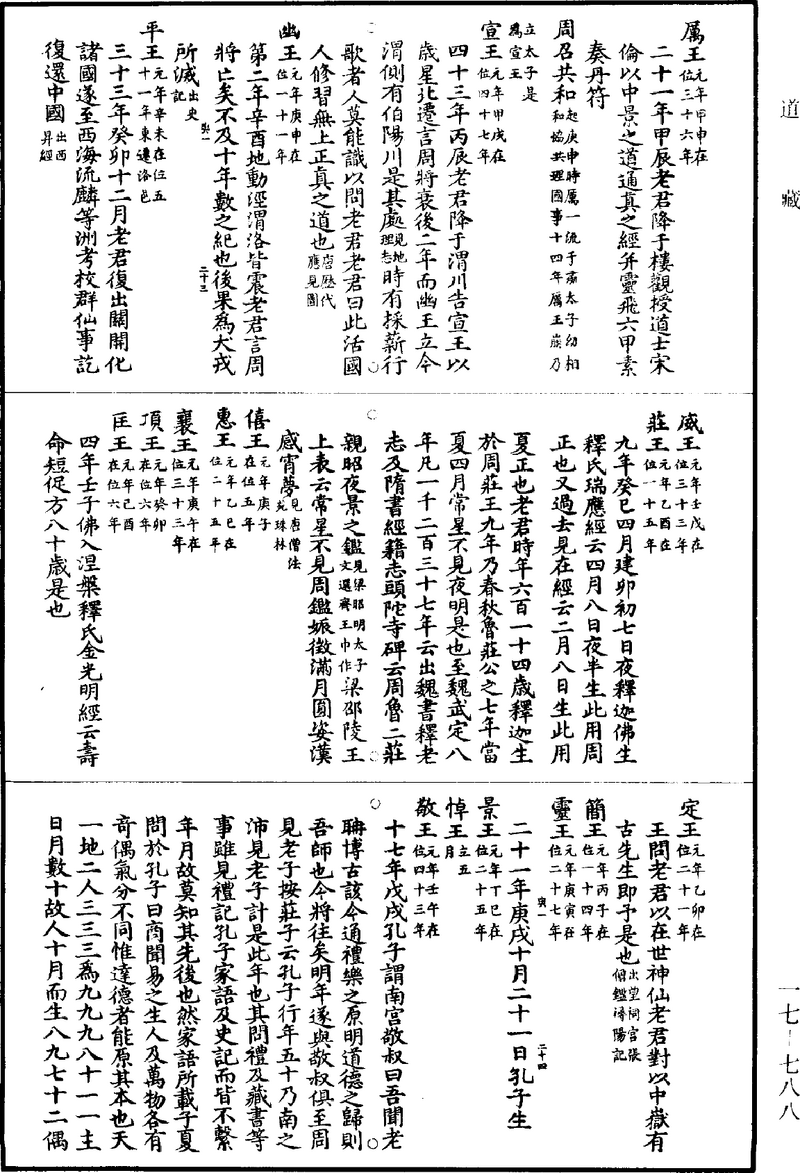 道藏
厲王元年甲申在位三十六年
二十一年甲辰老君降于樓觀授道士宋
倫以中景之道通真之經并靈飛六甲素
奏丹符
周召共和起庚申時厲一流于彘太子幼相和協共理國事十四年厲王崩乃
立太子是爲宣王
宣王元年甲戌在位四十七年
四十三年丙辰老君降于渭川告宣王以
歲星北遷言周將衰後二年而幽王立今
渭側有伯陽川是其處見地理志時有採薪行
歌者人莫能識以問老君老君曰此活國
人修習無上正真之道也唐歷代應見圖
幽王元年庚申在位一十一年
第二年辛酉地動涇渭洛皆震老君言周
將亡矣不及十年數之紀也後果為犬戎
所滅出史記
與一
二十三
平王元年辛未在位五十一年東遷洛邑
三十三年癸卯十二月老君復出關開化
諸國遂至西海流麟等洲考校群仙事訖
復還中國出西昇經
威王元年壬戌在位三十三年
莊王元年乙酉在位一十五年
九年癸巳四月建卯初七日夜釋迦佛生
釋氏瑞應經云四月八日夜半生此用周
正也又過去見在經云二月八日生此用
夏正也老君時年六百一十四歲釋迦生
於周莊王九年乃春秋魯莊公之七年當
夏四月常星不見夜明是也至魏武定八
年凡一千二百三十七年云出魏書釋老
志及隋書經籍志頭陀寺碑云周魯二莊
親昭夜景之鑑見梁昭明太子文選齊王巾作梁邵陵王
上表云常星不見周鑑娠徵滿月圓姿漢
感宵夢見唐僧法苑珠林
僖王元年庚子在位五年
惠王元年乙巳在位二十五年
襄王元年庚午在位三十三年
頂王元年癸卯在位六年
匡王元年己酉在位六年
四年壬子佛入涅槃釋氏金光明經云壽
命短促方八十歲是也
定王元年乙卯在位二十一年
王問老君以在世神仙老君對以中嶽有
古先生即予是也出望祠宮張僧鑑潯陽記
簡王元年丙子在位一十四年
靈王元年庚寅在位二十七年
與一
二十四
二十一年庚戌十月二十一日孔子生
景王元年丁巳在位二十五年
悼王立五月
敬王元年壬午在位四十三年
十七年戊戌孔子謂南宮敬叔曰吾聞老
聃博古該今通禮樂之原明道德之歸則
吾師也今將往矣明年遂與敬叔俱至周
見老子按莊子云孔子行年五十乃南之
沛見老子計是此年也其問禮及藏書等
事雖見禮記孔子家語及史記而皆不繫
年月故莫知其先後也然家語所載子夏
問於孔子曰商聞易之生人及萬物各有
奇偶氣分不同惟達德者能原其本也天
一地二人三三三爲九九九八十一一主
日月數十故人十月而生八九七十二偶
一七—七八八